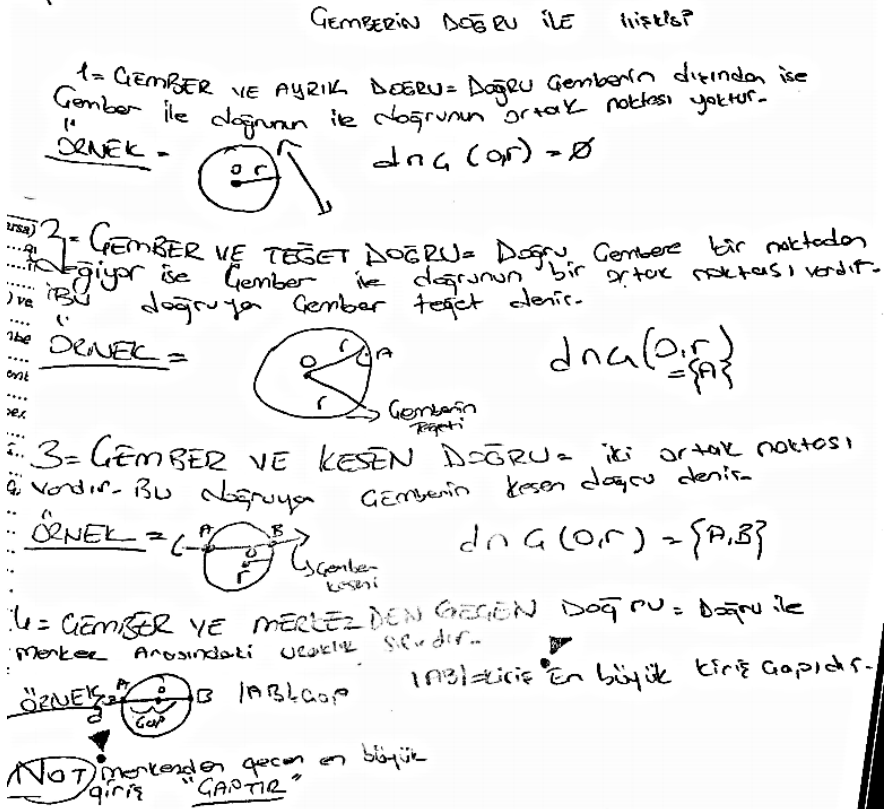 GEMBERİN DOĞRU İLE İLİŞKİSİ
1= GEMBER VE AYRIK DOĞRU= Doğru Gemberin dışından ise
Gember ile doğrunun ile doğrunun ortak noktası yoktur-
ÖRNEK =
O r
d∩G (O,r) = Ø
2= GEMBER VE TEĞET DOĞRU= Doğru Gembere bir noktadan
değiyor ise Gember ile doğrunun bir ortak noktası vardır-
Bu doğruya Gember teğet denir-
ÖRNEK =
O r A
r
Gemberin
Teğeti
d∩G(O,r)
={A}
3= GEMBER VE KESEN DOĞRU= iki ortak noktası
vardır- Bu doğruya GEMberin kesen doğru denir-
ÖRNEK =
A B
O
r
Gember
keseni
d∩G (O,r) = {A,B}
4= GEMBER VE MERKEZDEN GEGEN DOĞRU= Doğru ile
merkez Arasındaki uzaklık sıfırdır-
ÖRNEK
A O B
d
Gap
|AB|=Gap
|AB|=kiriş En büyük kiriş Gapıdır-
NOT) merkezden gecen en büyük
giriş "GAPTIR"